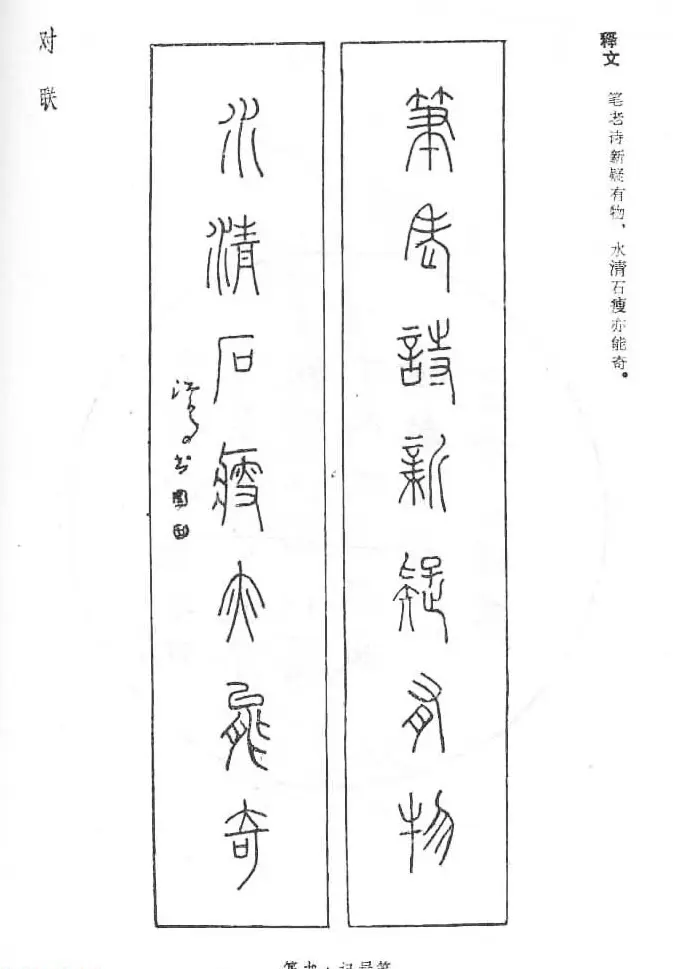 释文 笔老诗新疑有物、水清石瘦亦能奇。
筆老詩新疑有物
水清石瘦亦能奇
对联